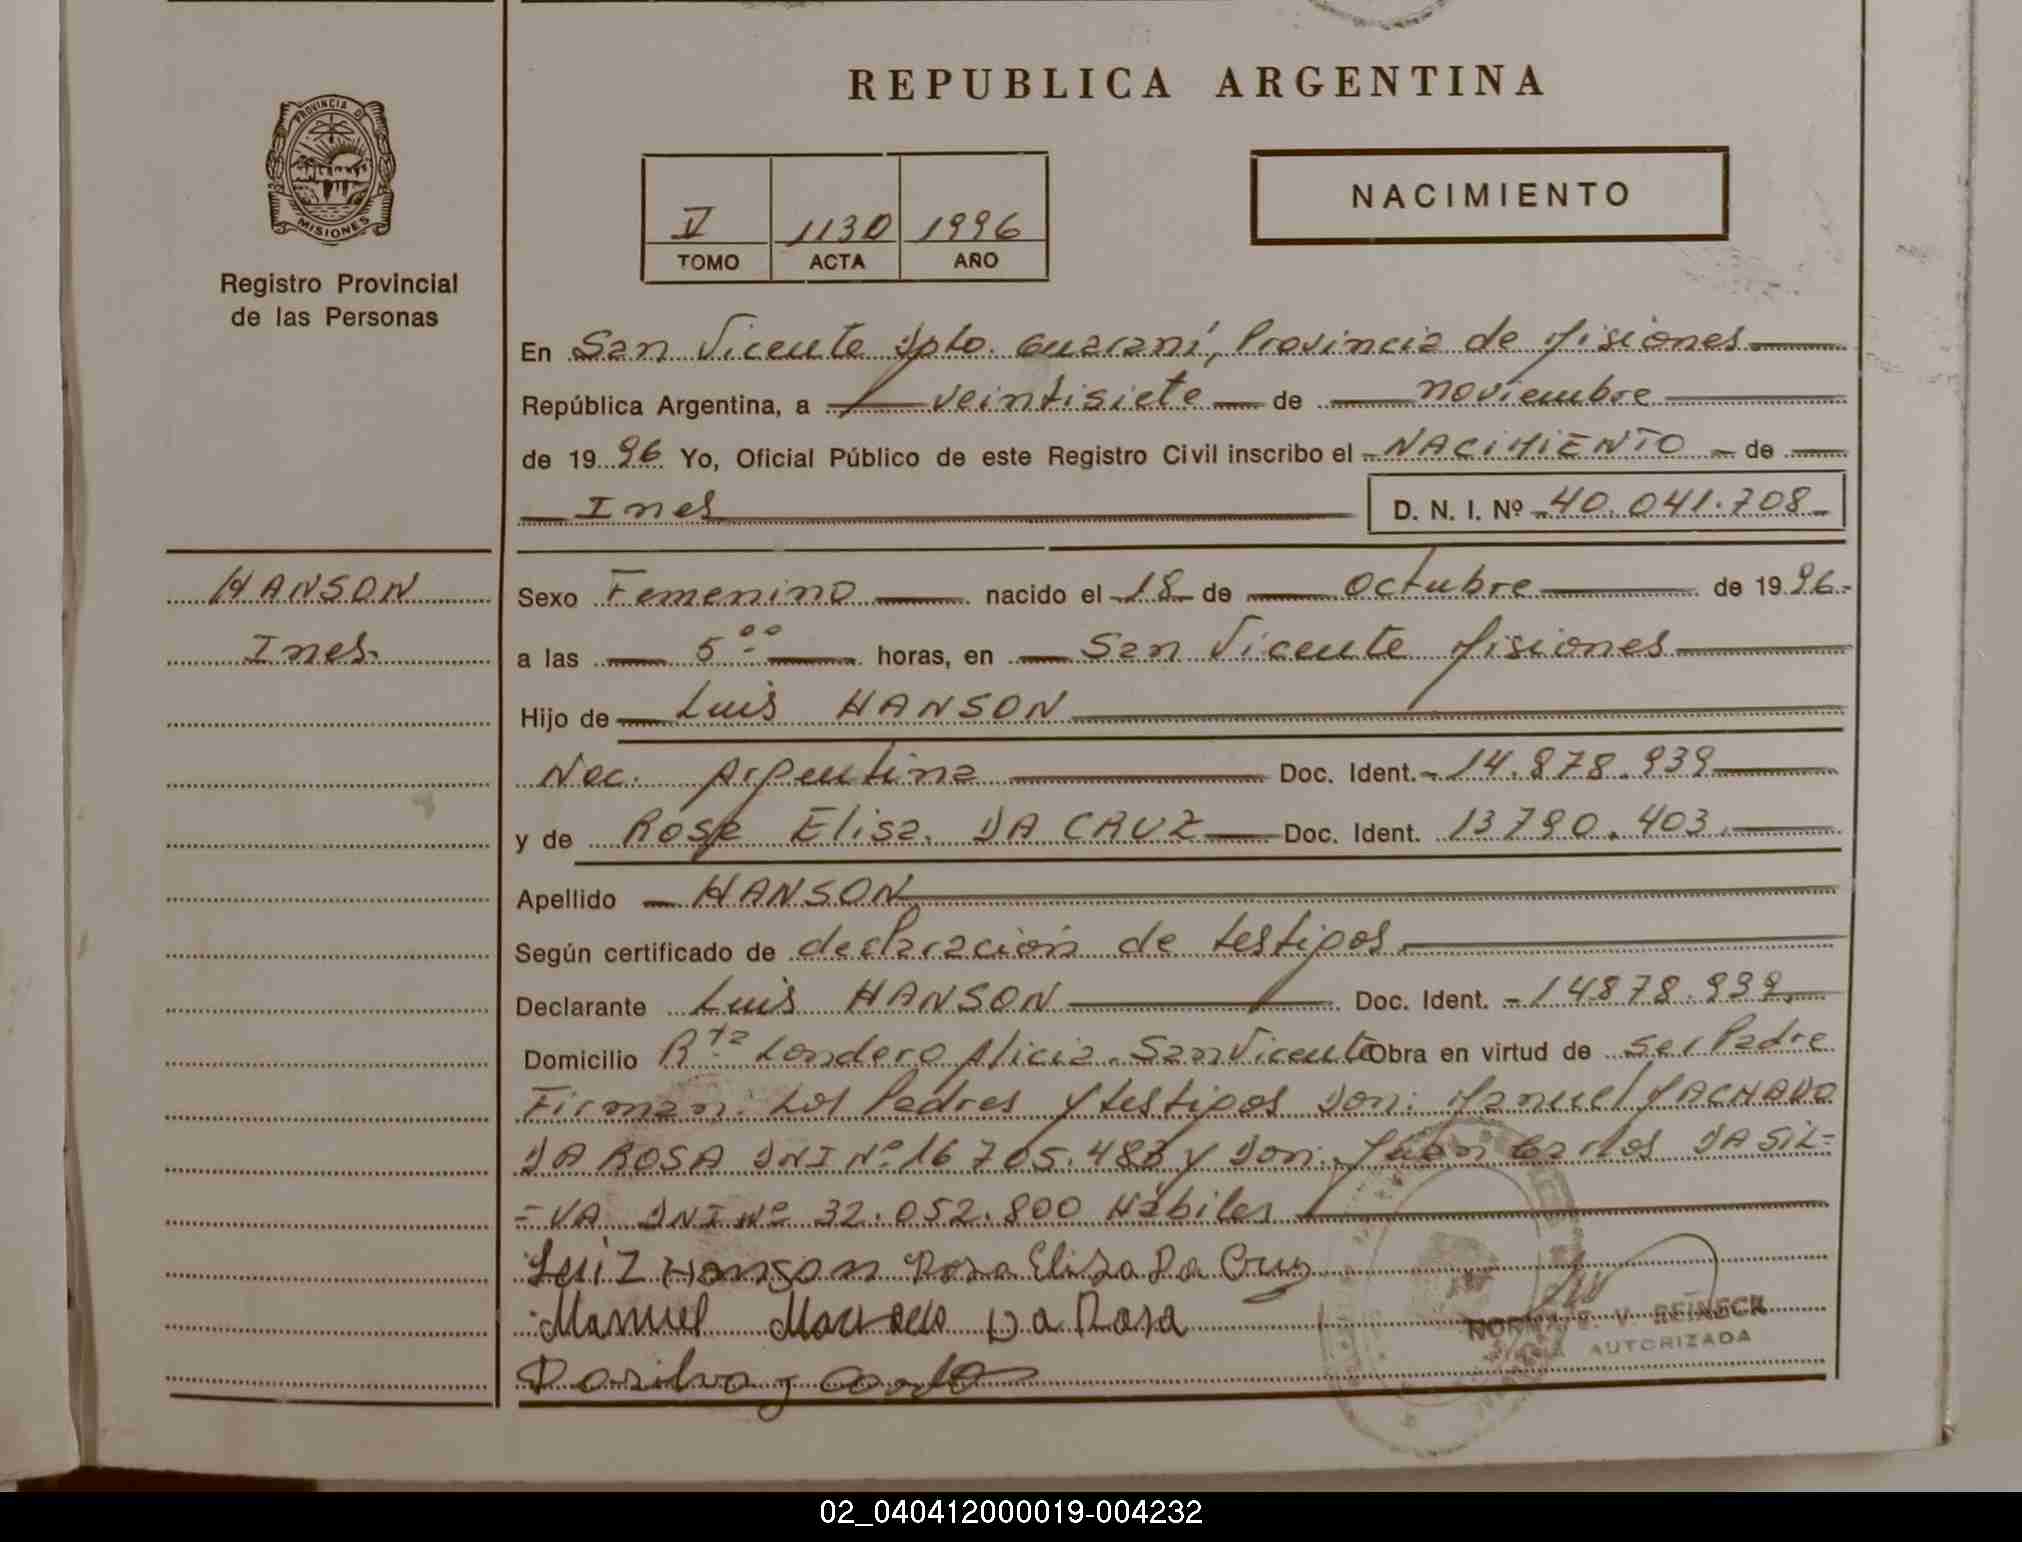 REPUBLICA ARGENTINA
PROVINCIA DE
MISIONES
Registro Provincial
de las Personas
V 1130 1996
TOMO ACTA AÑO
NACIMIENTO
En San Vicente Dpto. Guaraní, Provincia de Misiones
República Argentina, a veintisiete de noviembre
de 1996 Yo, Oficial Público de este Registro Civil inscribo el NACIMIENTO de
Ines D. N. I. Nº 40.041.708
HANSON
Ines
Sexo Femenino nacido el 18 de octubre de 1996.
a las 5⁰⁰ horas, en San Vicente Misiones
Hijo de Luis HANSON
Nac. Argentina Doc. Ident. 14.878.939
y de Rosa Elisa DA CRUZ Doc. Ident. 13790.403
Apellido HANSON
Según certificado de declaración de testigos
Declarante Luis HANSON Doc. Ident. 14878.939
Domicilio Rta Londero Alicia. San Vicente Obra en virtud de ser Padre
Firman: Los Padres y testigos Don: Manuel MACHADO
DA ROSA DNI Nº 16.705.483 y Don: Juan Carlos DA SIL=
=VA DNI Nº 32.052.800 Hábiles
Luiz Hanson Rosa Elisa Da Cruz
Manuel Machado Da Rosa
Dasilva
NORMA V. REINECK
AUTORIZADA
02_040412000019-004232